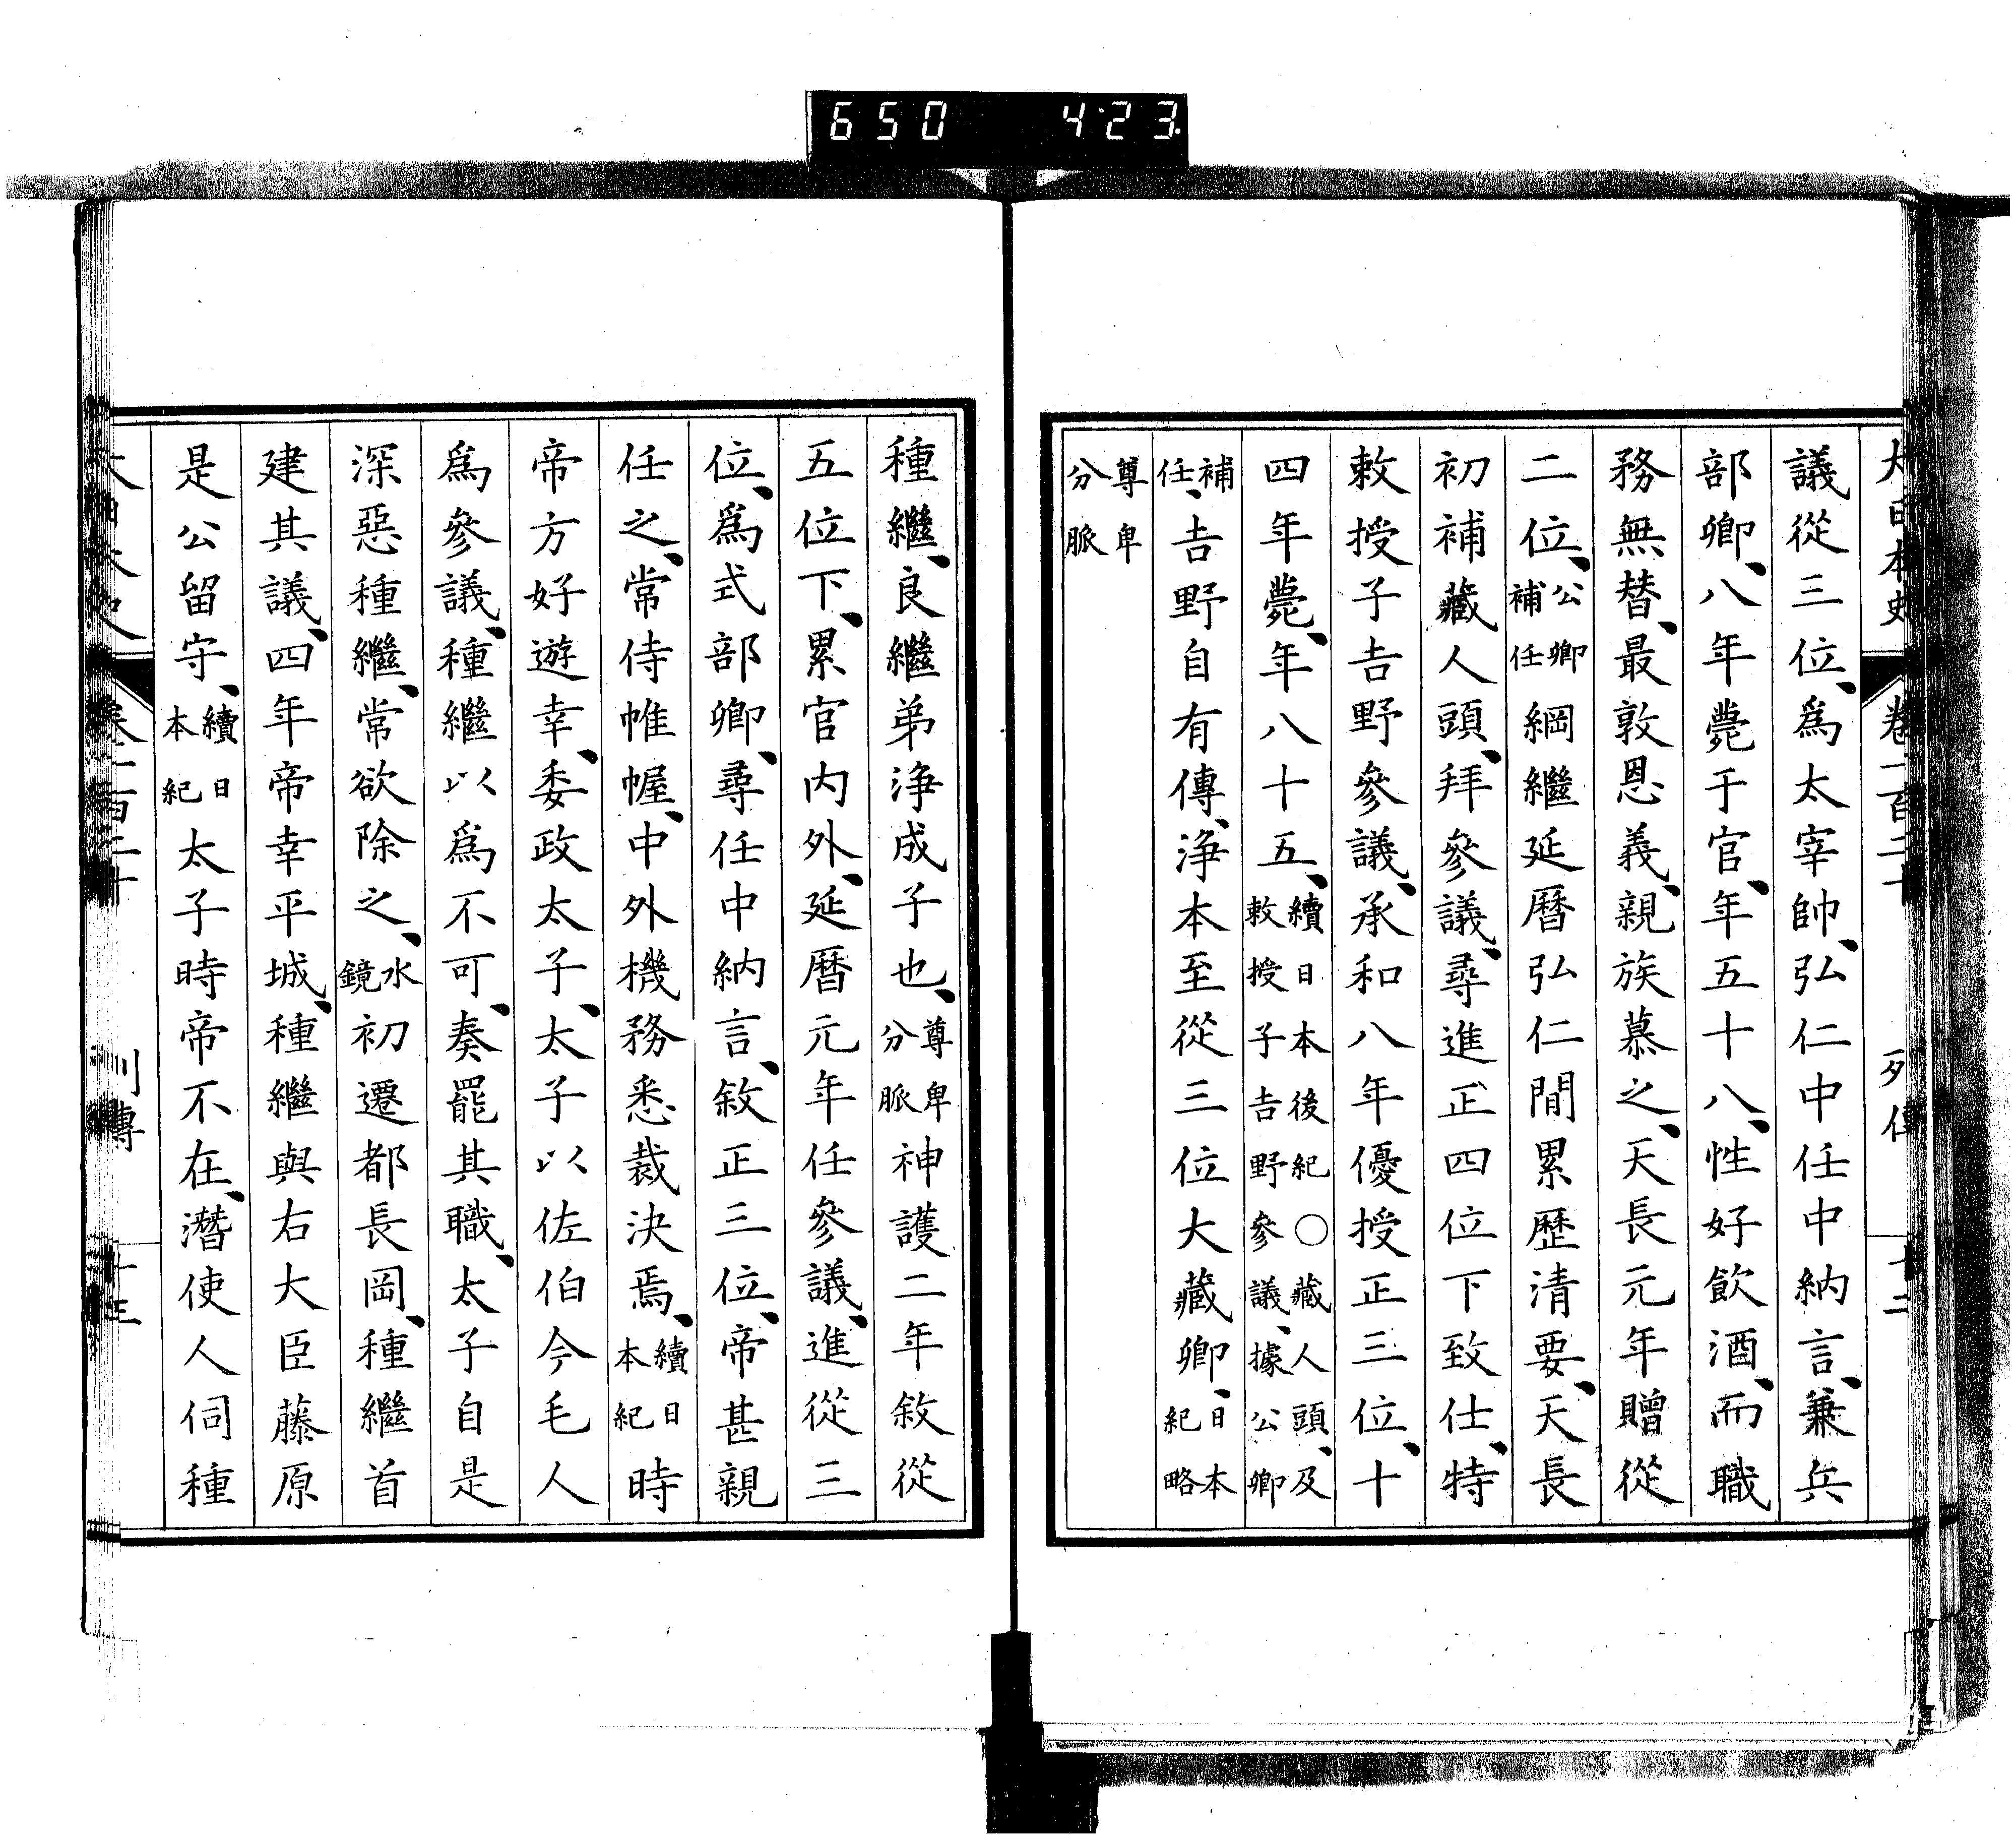 650 4·23.
大日本史 卷一百二十 列傳 十二
議從三位、爲太宰帥、弘仁中任中納言、兼兵
部卿、八年薨于官、年五十八、性好飮酒、而職
務無替、最敦恩義、親族慕之、天長元年贈從
二位、公卿補任綱繼延曆弘仁間累歷清要、天長
初補藏人頭、拜參議、尋進正四位下致仕、特
敕授子吉野參議、承和八年優授正三位、十
四年薨、年八十五、續日本後紀○藏人頭、及敕授子吉野參議、據公卿
補任、吉野自有傳、淨本至從三位大藏卿、日本紀略
尊卑分脈
種繼、良繼弟淨成子也、尊卑分脈神護二年敘從
五位下、累官内外、延曆元年任參議、進從三
位、爲式部卿、尋任中納言、敘正三位、帝甚親
任之、常侍帷幄、中外機務悉裁決焉、續日本紀時
帝方好遊幸、委政太子、太子以佐伯今毛人
爲參議、種繼以爲不可、奏罷其職、太子自是
深惡種繼、常欲除之、水鏡初遷都長岡、種繼首
建其議、四年帝幸平城、種繼與右大臣藤原
是公留守、續日本紀太子時帝不在、潛使人伺種
列傳